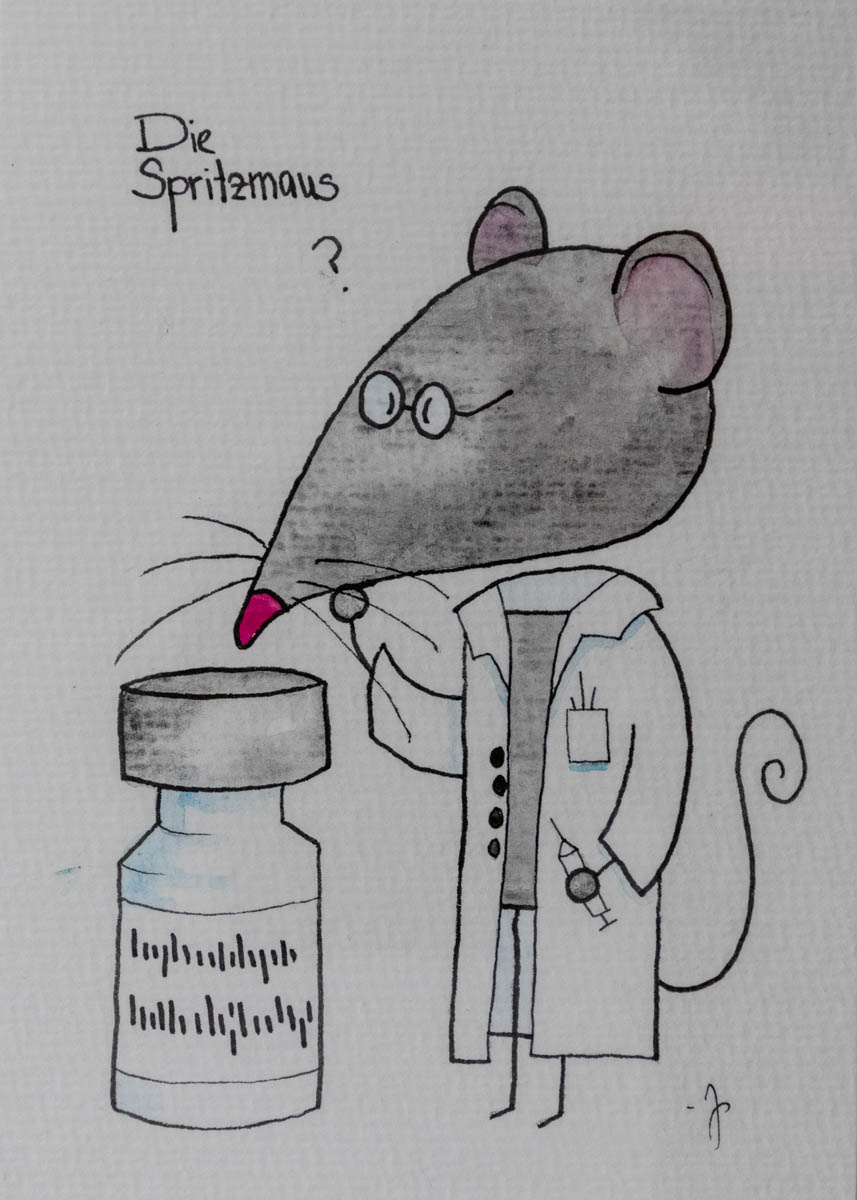 Die
Spritzmaus
?